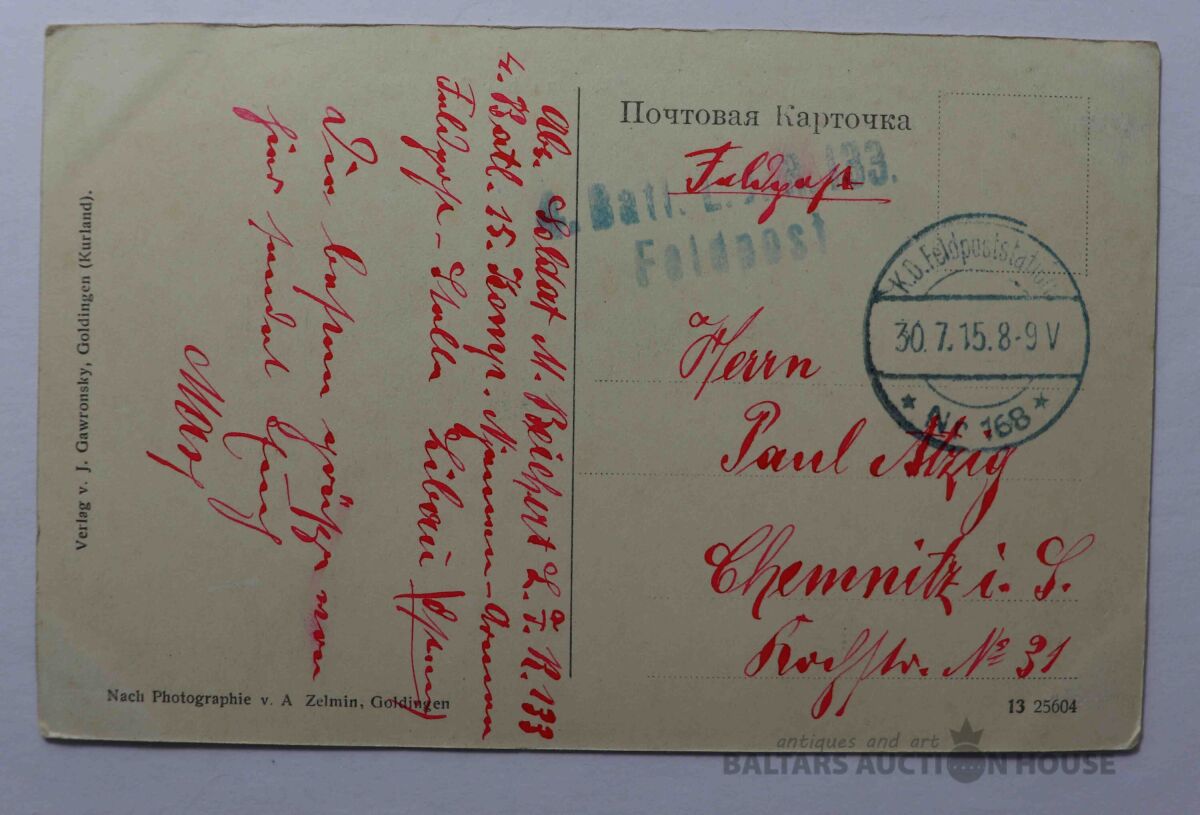 Почтовая Карточка
Feldpost
4. Batl. L. J. R. 133.
Feldpost
K.D. Feldpoststation
30.7.15.8-9 V
* Nr. 168 *
Herrn
Paul Atzig
Chemnitz i. S.
Kochstr. № 31
13 25604
Abs. Soldat M. Beichert L. I. R. 133
4. Batl. 15. Komp. Njemen-Armee
Feldpost-Stelle Libau
Die besten Grüße von
hier sendet
Max
Verlag v. J. Gawronsky, Goldingen (Kurland).
Nach Photographie v. A Zelmin, Goldingen
antiques and art
BALTARS AUCTION HOUSE